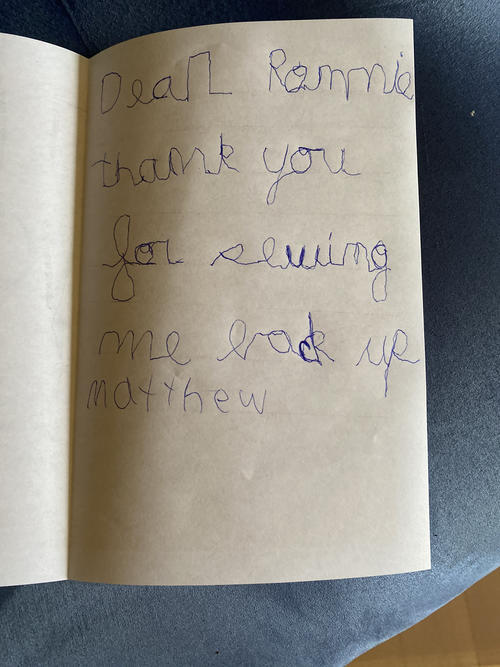 Dear Ronnie
thank you
for sewing
me back up
Matthew